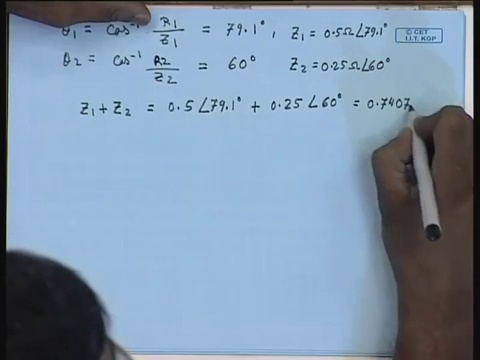 θ1 = Cos⁻¹ R1/Z1 = 79.1°, Z1 = 0.5Ω∠79.1°
© CET
I.I.T. KGP
θ2 = Cos⁻¹ R2/Z2 = 60° Z2 = 0.25Ω∠60°
Z1 + Z2 = 0.5∠79.1° + 0.25∠60° = 0.7407